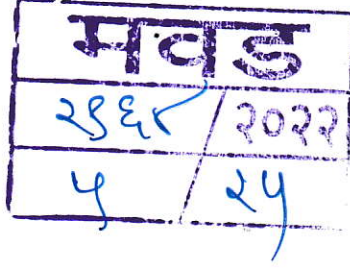 मवड
२९६४ / २०२२
५ / २५